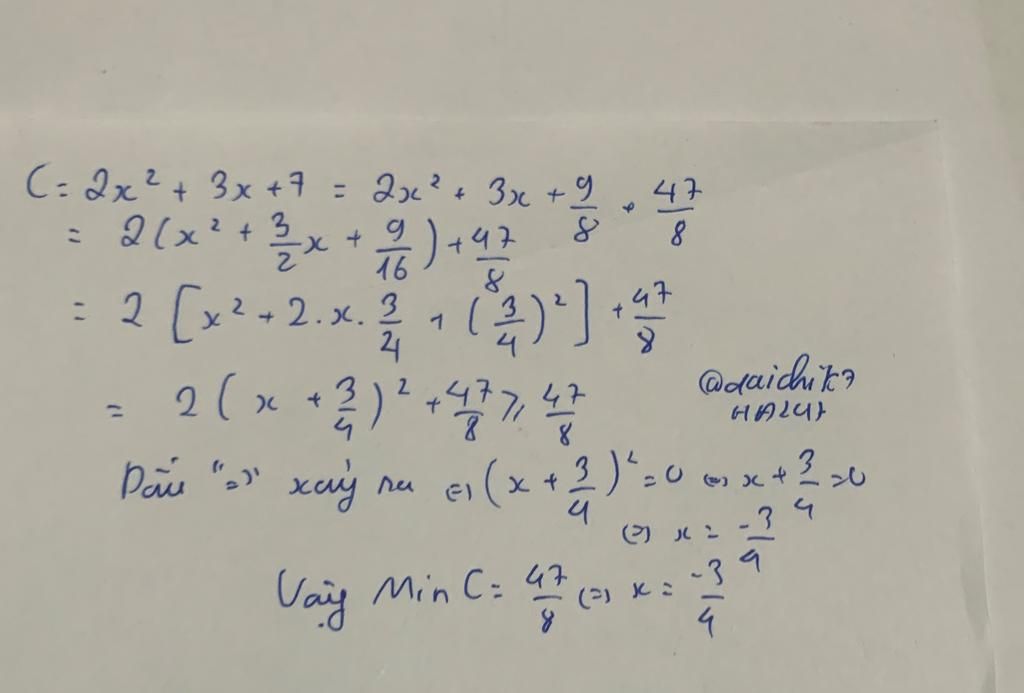 C = 2x² + 3x + 7 = 2x² + 3x + 9/8 + 47/8
= 2(x² + 3/2x + 9/16) + 47/8
= 2[x² + 2.x.3/4 + (3/4)²] + 47/8
= 2(x + 3/4)² + 47/8 ≥ 47/8
@daichik7
Dấu "=" xảy ra ⇔ (x + 3/4)² = 0 ⇔ x + 3/4 = 0
⇔ x = -3/4
Vậy Min C = 47/8 ⇔ x = -3/4